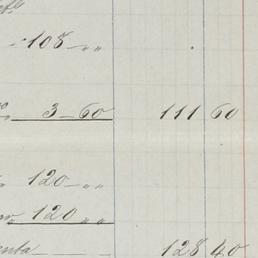 108 „ „
3 — 60 111 60
120 — „ „
120 „ „
128 40